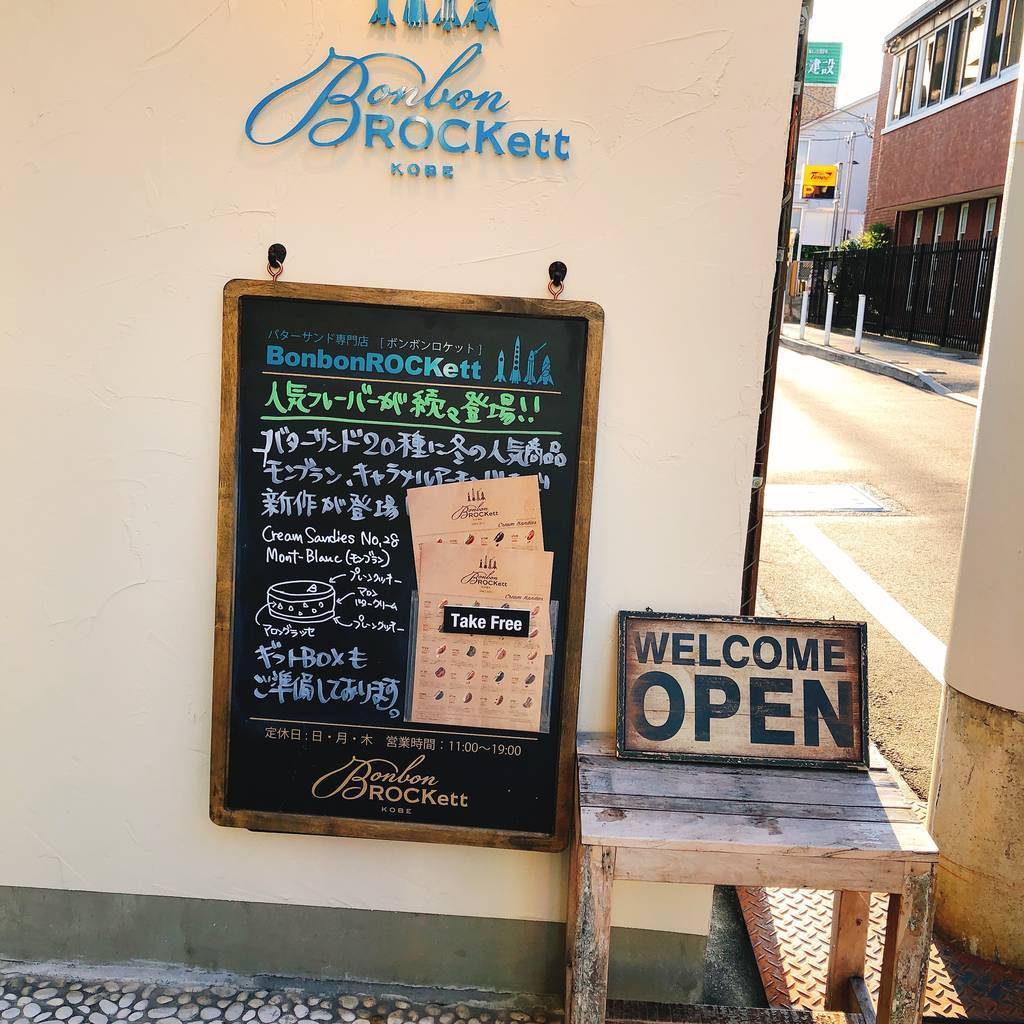 Bonbon
ROCKett
KOBE
建設
Times
P
バターサンド専門店 [ボンボンロケット]
BonbonROCKett
人気フレーバーが続々登場!!
バターサンド20種に冬の人気商品
モンブラン、キャラメルアーモンド
新作が登場
Cream Sandies No,28
Mont-Blanc (モンブラン)
プレーンクッキー
マロン
バタークリーム
プレーンクッキー
マロングラッセ
ギフトBOXも
ご準備しております。
Bonbon
ROCKett
Cream Sandies
Bonbon
ROCKett
Cream Sandies
Take Free
定休日:日・月・木 営業時間:11:00〜19:00
Bonbon
ROCKett
KOBE
WELCOME
OPEN